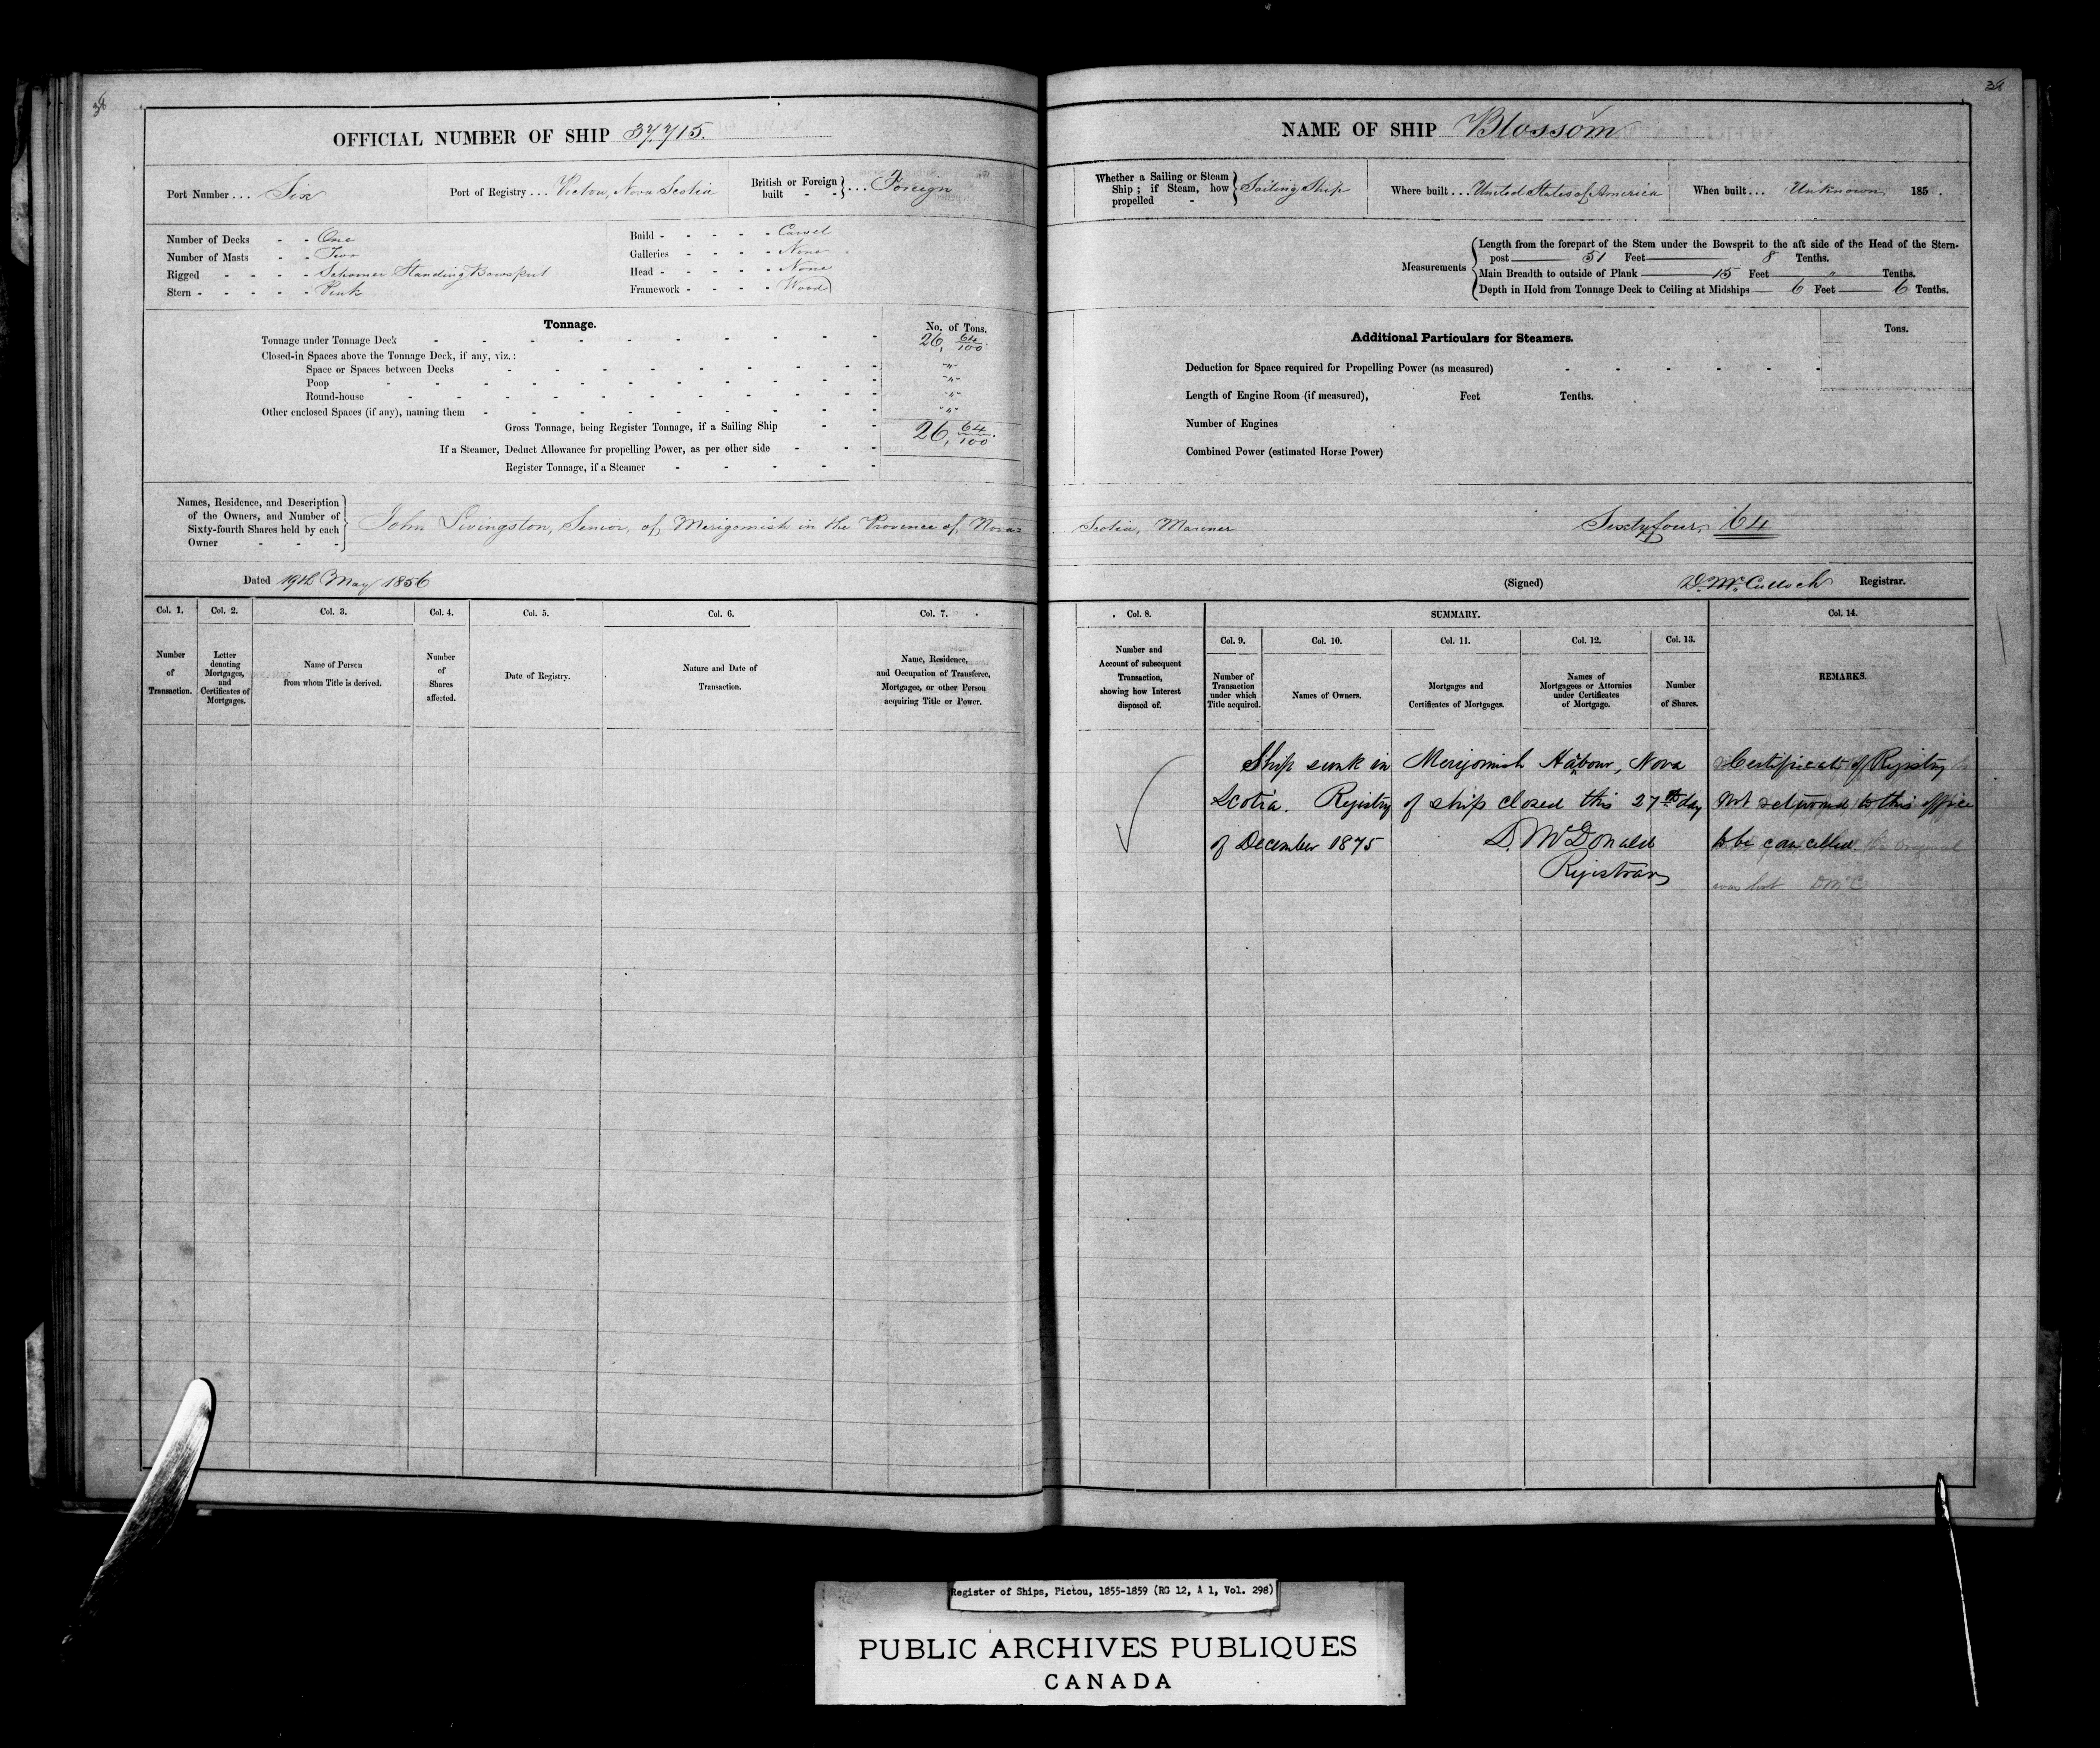 OFFICIAL NUMBER OF SHIP 37,715.
Port Number ... Six
Port of Registry ... Pictou, Nova Scotia
British or Foreign built - - } ... Foreign
Number of Decks - - One
Number of Masts - - Two
Rigged - - - - Schooner Standing Bowsprit
Stern - - - - - Pink
Build - - - - - Carvel
Galleries - - - - None
Head - - - - - None
Framework - - - - Wood
Tonnage.
No. of Tons.
Tonnage under Tonnage Deck 26, 64/100.
Closed-in Spaces above the Tonnage Deck, if any, viz.:
Space or Spaces between Decks - - "
Poop - - "
Round-house - - "
Other enclosed Spaces (if any), naming them - - "
Gross Tonnage, being Register Tonnage, if a Sailing Ship 26, 64/100.
If a Steamer, Deduct Allowance for propelling Power, as per other side
Register Tonnage, if a Steamer
Names, Residence, and Description of the Owners, and Number of Sixty-fourth Shares held by each Owner - - -
John Livingston, Senior, of Merigomish in the Provence of Nova=
Dated 19th May 1856
Col. 1. Col. 2. Col. 3. Col. 4. Col. 5. Col. 6. Col. 7.
Number of Transaction.
Letter denoting Mortgages, and Certificates of Mortgages.
Name of Person from whom Title is derived.
Number of Shares affected.
Date of Registry.
Nature and Date of Transaction.
Name, Residence, and Occupation of Transferee, Mortgagee, or other Person acquiring Title or Power.
NAME OF SHIP Blossom
Whether a Sailing or Steam Ship; if Steam, how propelled - } Sailing Ship
Where built ... United States of America
When built ... Unknown 185 .
Measurements
Length from the forepart of the Stem under the Bowsprit to the aft side of the Head of the Stern-
post 51 Feet 8 Tenths.
Main Breadth to outside of Plank 15 Feet " Tenths.
Depth in Hold from Tonnage Deck to Ceiling at Midships 6 Feet 6 Tenths.
Additional Particulars for Steamers.
Tons.
Deduction for Space required for Propelling Power (as measured)
Length of Engine Room (if measured), Feet Tenths.
Number of Engines
Combined Power (estimated Horse Power)
Scotia, Mariner Sixty four, 64
(Signed) D. McCulloch Registrar.
Col. 8. SUMMARY. Col. 14.
Col. 9. Col. 10. Col. 11. Col. 12. Col. 13.
Number and Account of subsequent Transaction, showing how Interest disposed of.
Number of Transaction under which Title acquired.
Names of Owners.
Mortgages and Certificates of Mortgages.
Names of Mortgagees or Attornies under Certificates of Mortgage.
Number of Shares.
REMARKS.
Ship sunk in Merigomish Habour, Nova
Scotia. Registry of ship closed this 27th day
of December 1875 D. McDonald
Registrar
Certificate of Registry
not returned to this office
to be cancelled. the original
was lost DMcC
Register of Ships, Pictou, 1855-1859 (RG 12, A 1, Vol. 298)
PUBLIC ARCHIVES PUBLIQUES
CANADA